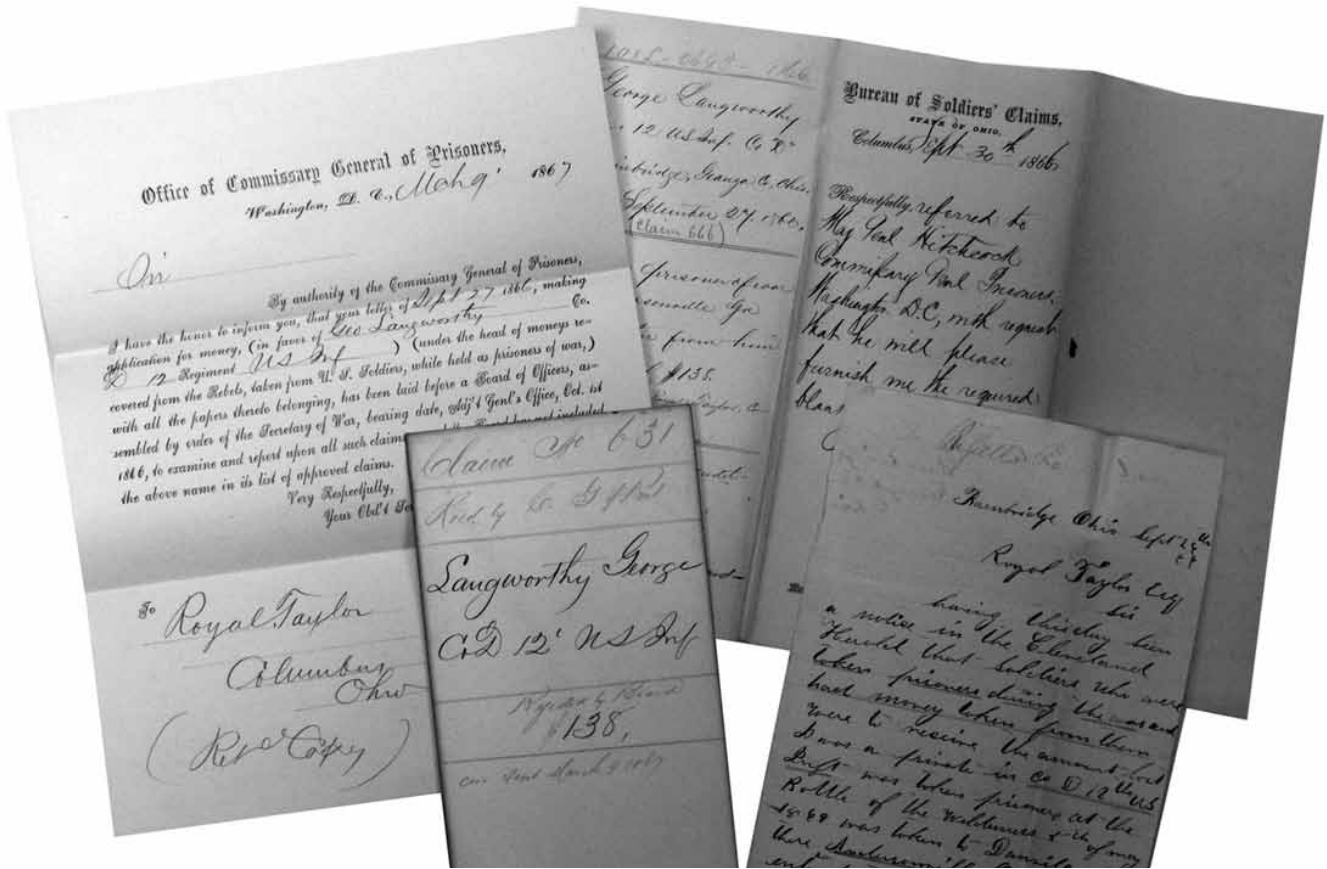 Office of Commissary General of Prisoners,
Washington, D. C., Mch 9' 1867
Sir
By authority of the Commissary General of Prisoners,
I have the honor to inform you, that your letter of Sept 27 1866, making
application for money, (in favor of Geo Langworthy Co.
D 12 Regiment US Inf ) (under the head of moneys re-
covered from the Rebels, taken from U. S. Soldiers, while held as prisoners of war,)
with all the papers thereto belonging, has been laid before a Board of Officers, as-
sembled by order of the Secretary of War, bearing date, Adj't Genl's Office, Oct. 1st
1866, to examine and report upon all such claims, and the Board has not included
the above name in its list of approved claims.
Very Respectfully,
Your Obd't Se
To Royal Taylor
Columbus
Ohio
George Langworthy
12 US Inf. Co D
inbridge, Geauga Co, Ohio.
September 27. 1866.
(Claim 666)
prisoner
sonville Ga
from him
$138.
Taylor,
Bureau of Soldiers' Claims,
STATE OF OHIO,
Columbus, Sept 30th 1866
Respectfully referred to
Maj Genl Hitchcock
Commissary Genl Prisoners,
Washington D.C, with request
that he will please
furnish me the required
blan
Claim No 631
Recd by C. G. of
Langworthy George
Co D 12' US Inf
Rejected by Board
$138.
Sent March 9 1867
Bainbridge Ohio Sept 27th
Royal Taylor Esq
Sir
having this day seen
a notice in the Cleveland
Herald that soldiers who were
taken prisoners during the war and
had money taken from them
were to receive the amount lost
I was a private in Co D 12th US
Inft was taken prisoner at the
Battle of the Wilderness 5th of may
1864 was taken to Danville
there Andersonville